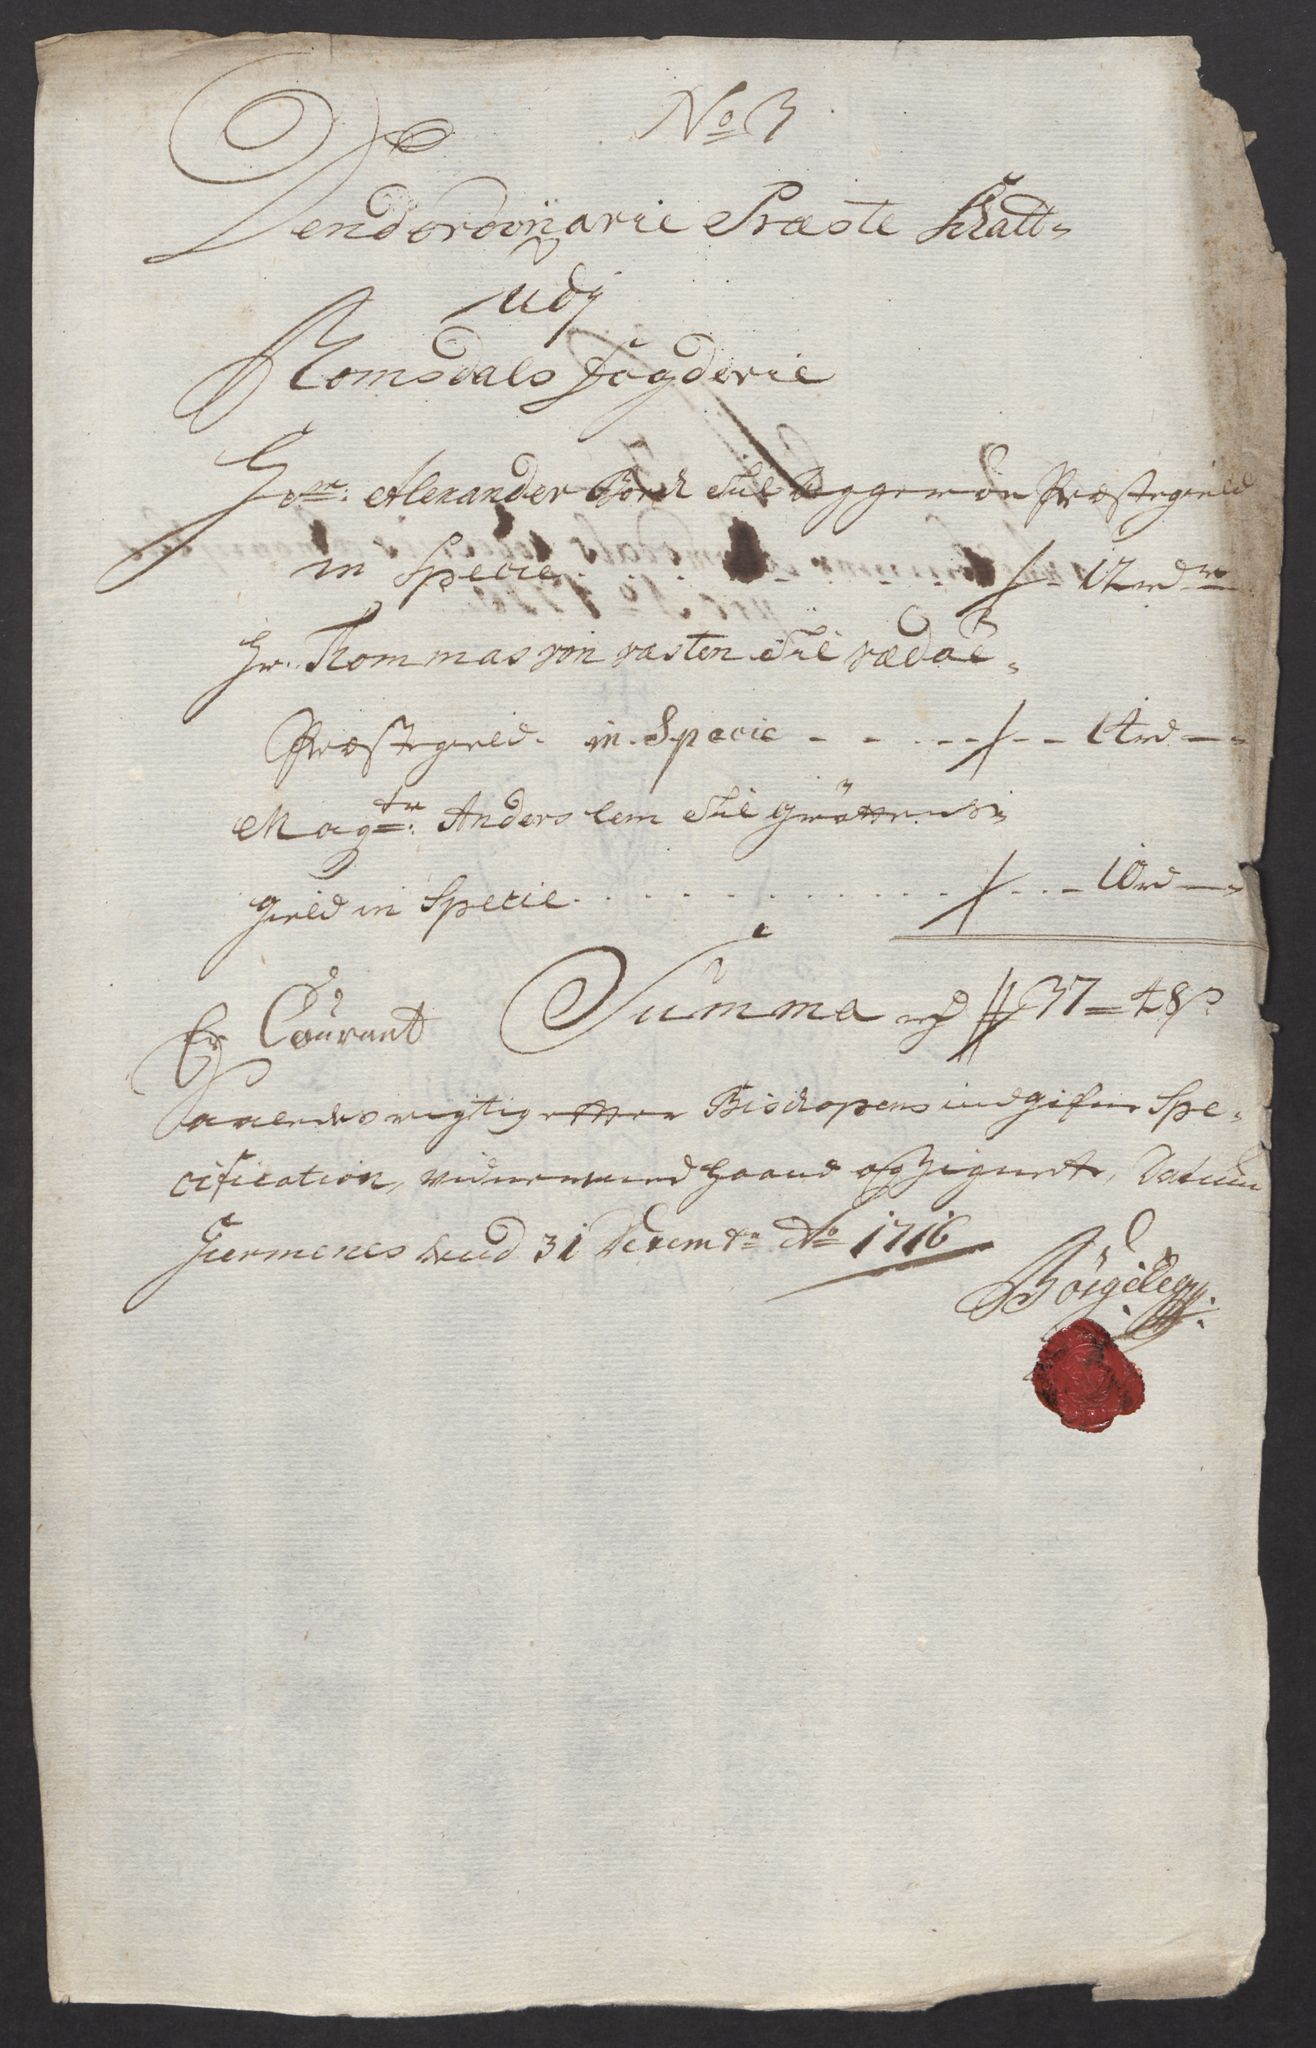 No 3
Den Ordinarie Præste Skatt
udj
Romsdals Fogderie
Hr: Alexander Borch Till Agger ön Præstegield
in Specie / 12 rd
Hr. Thommas von Vasten Till Vædøe
Præstegield in Specie - - / - - 14 rd -
Magtr: Anders Lem Till Gröttens
gield in Specie . . . / - - 10 rd -
Er Courant Summa rd 37 - 48 s
Saaledes rigtig etter Bischopens indgifne Spe-
cification, vidner med Haand og Zignete, Datum
den 31 Decembr Ao 1716